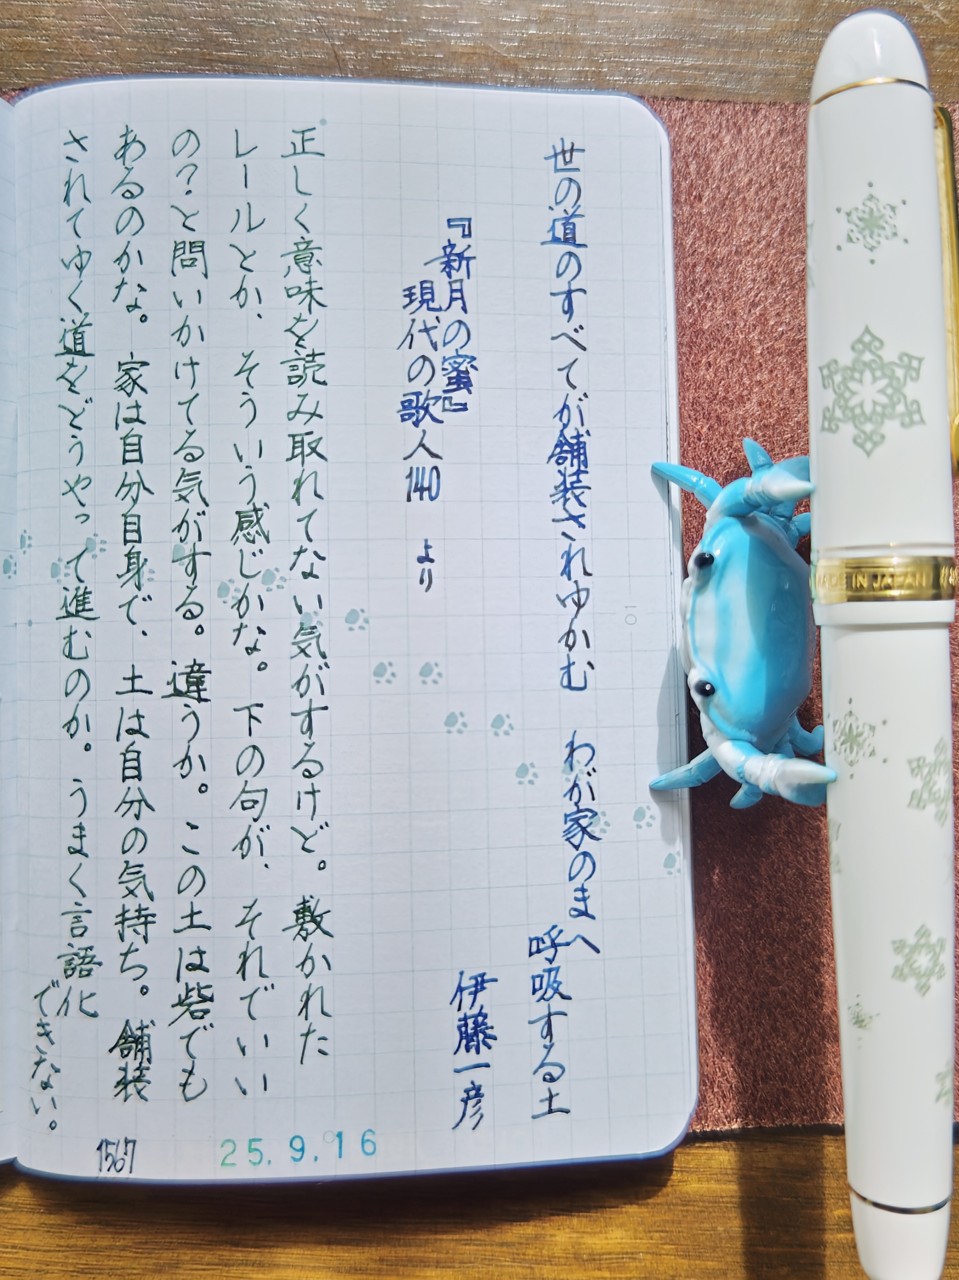 世の道のすべてが舗装されゆかむ　わが家のまへ
呼吸する土
『新月の蜜』
現代の歌人140　より
伊藤一彦
正しく意味を読み取れてない気がするけど。敷かれた
レールとか、そういう感じかな。下の句が、それでいい
の？と問いかけてる気がする。違うか。この土は砦でも
あるのかな。家は自分自身で、土は自分の気持ち。舗装
されてゆく道をどうやって進むのか。うまく言語化
できない。
1567
25.9.16
MADE IN JAPAN